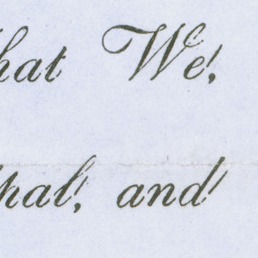 hat We,
pal, and